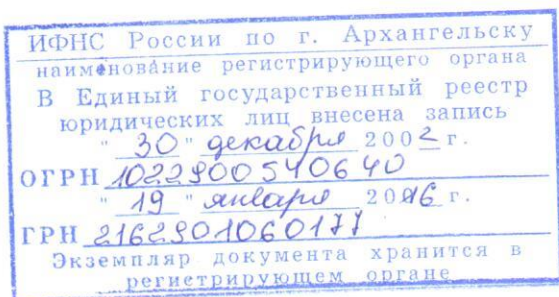 ИФНС России по г. Архангельску
наименование регистрирующего органа
В Единый государственный реестр
юридических лиц внесена запись
" 30 " декабря 2002 г.
ОГРН 1022900540640
" 19 " января 2016 г.
ГРН 2162901060177
Экземпляр документа хранится в
регистрирующем органе